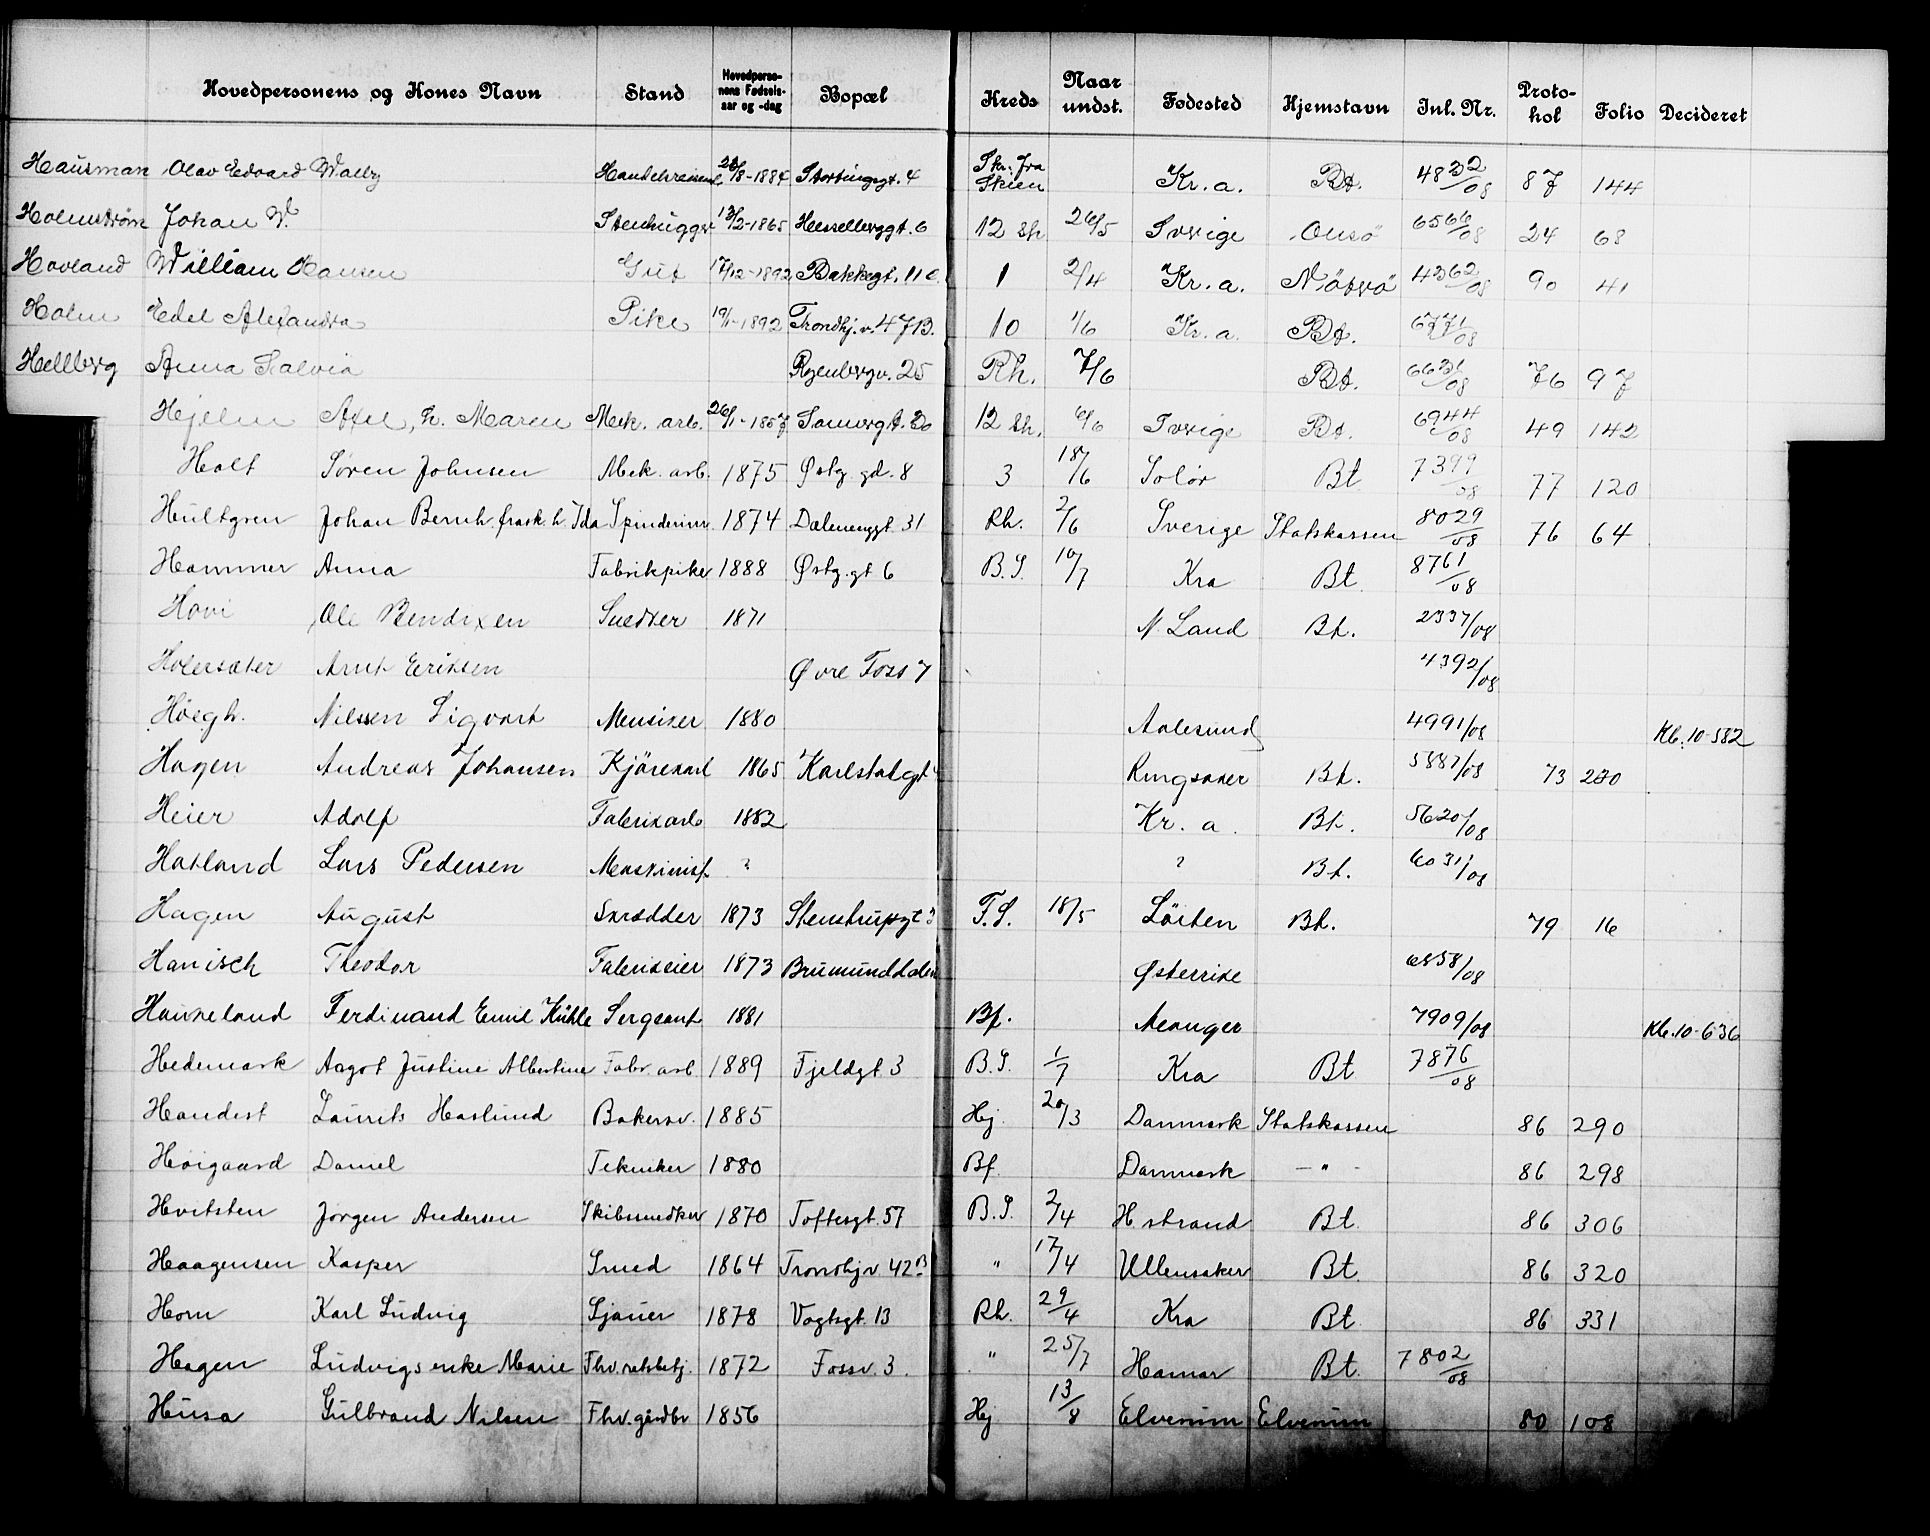 Hovedpersonens og Kones Navn Stand Hovedpersonens Fødselsaar og -dag Bopæl Kreds Naar undst. Fødested Hjemstavn Inl. Nr. Protokol Folio Decideret
Hausman Olav Edvard Wally Handelsreisend. 28/8-1884 Stortingsgt. 4 Skr. fra Skien Kr.a. Bt. 4832/08 87 144
Holmstrøm Johan W. Stenhugger 13/2-1865 Hesselberggt. 6 12 Sk. 26/5 Sverige Onsö 6566/08 24 68
Hovland William Hansen Gut 17/12-1892 Bakkegt. 11 c. 1 2/4 Kr.a. Nötterö 4362/08 90 41
Holm Edel Alexandra Pike 19/1-1892 Trondhj.v. 47B. 10 1/6 Kr.a. Bt. 6771/08
Hellberg Anna Salvia Rosenbergv. 25 Rh. 4/6 Bt. 6631/08 76 97
Hjelm Axel, h. Maren Mek. arb. 26/1-1857 Sannergt. 20 12 Sk. 6/6 Sverige Bt. 6944/08 49 142
Holt Søren Johnsen Mek. arb. 1875 Østg. gd. 8 3 18/6 Solör Bt 7399/08 77 120
Hultgren Johan Bernh. frask. h. Ida Spinderim. 1874 Dælenenggt. 31 Rh. 2/6 Sverige Statskassen 8029/08 76 64
Hammer Anna Fabrikpike 1888 Østg. gt 6 B.S. 10/7 Kra Bt 8761/08
Hovi Ole Bendixen Snedker 1871 N. Land Bt. 2337/08
Holersæter Arnt Eriksen Øvre Foss 7 4392/08
Höegh. Nilssen Sigvart Musiker 1880 Aalesund 4991/08 Kb. 10-582
Hagen Andreas Johansen Kjörekarl 1865 Karlstadgt Ringsaker Bt. 5887/08 73 270
Heier Adolf Fabrikarb 1882 Kr. a. Bt. 5620/08
Hatland Lars Pedersen Maskinist ? ? Bt. 6031/08
Hagen August Skrædder 1873 Stenstrupgt 3 F.S. 18/5 Löiten Bt. 79 16
Hanisch Theodor Fabrikeier 1873 Brumunddalen Østerrike 6858/08
Haukeland Ferdinand Emil Kühle Sergeant 1881 Bf. Manger 7909/08 Kb. 10-636
Hedemark Aagot Justine Albertine Fabr. arb 1889 Fjeldgt. 3 B.S. 1/7 Kra Bt 7876/08
Handest Laurits Haslund Bakersv. 1885 Hj 20/3 Danmark Statskassen 86 290
Höigaard Daniel Tekniker 1880 Bf. Danmark — " — 86 298
Hvitsten Jørgen Andersen Skibssnedker 1870 Toftesgt. 57 B.S. 2/4 H.strand Bt. 86 306
Haagensen Kasper Smed 1864 Trondhjv 42 B " 17/4 Ullensaker Bt. 86 320
Horn Karl Ludvig Sjauer 1878 Vogtsgt. 13 Rh. 29/4 Kra Bt. 86 331
Hagen Ludvigs enke Marie Fhv. ratsbetj. 1872 Fossv. 3. " 25/7 Hamar Bt. 7802/08
Husa Gulbrand Nilsen Fhv. gårdbr 1856 Hj 13/8 Elverum Elverum 80 108